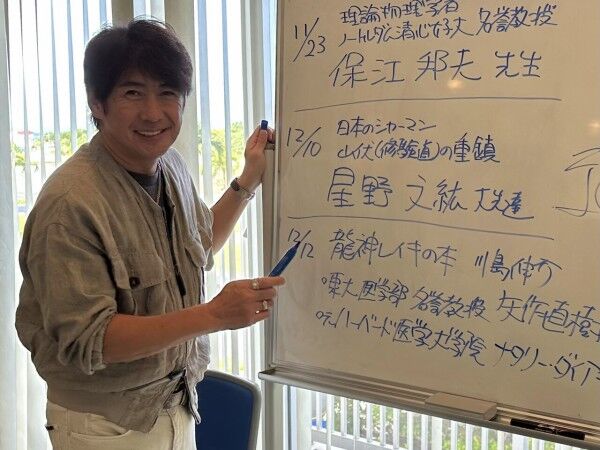 11/23
理論物理学者
ノートルダム清心女子大 名誉教授
保江 邦夫 先生
12/10
日本のシャーマン
山伏(修験道)の重鎮
星野 文紘 大先達
12/12
龍神レイキの本 川島伸介
東大医学部 名誉教授 矢作直樹
元ハーバード医学大学院 ナタリー・ダイア